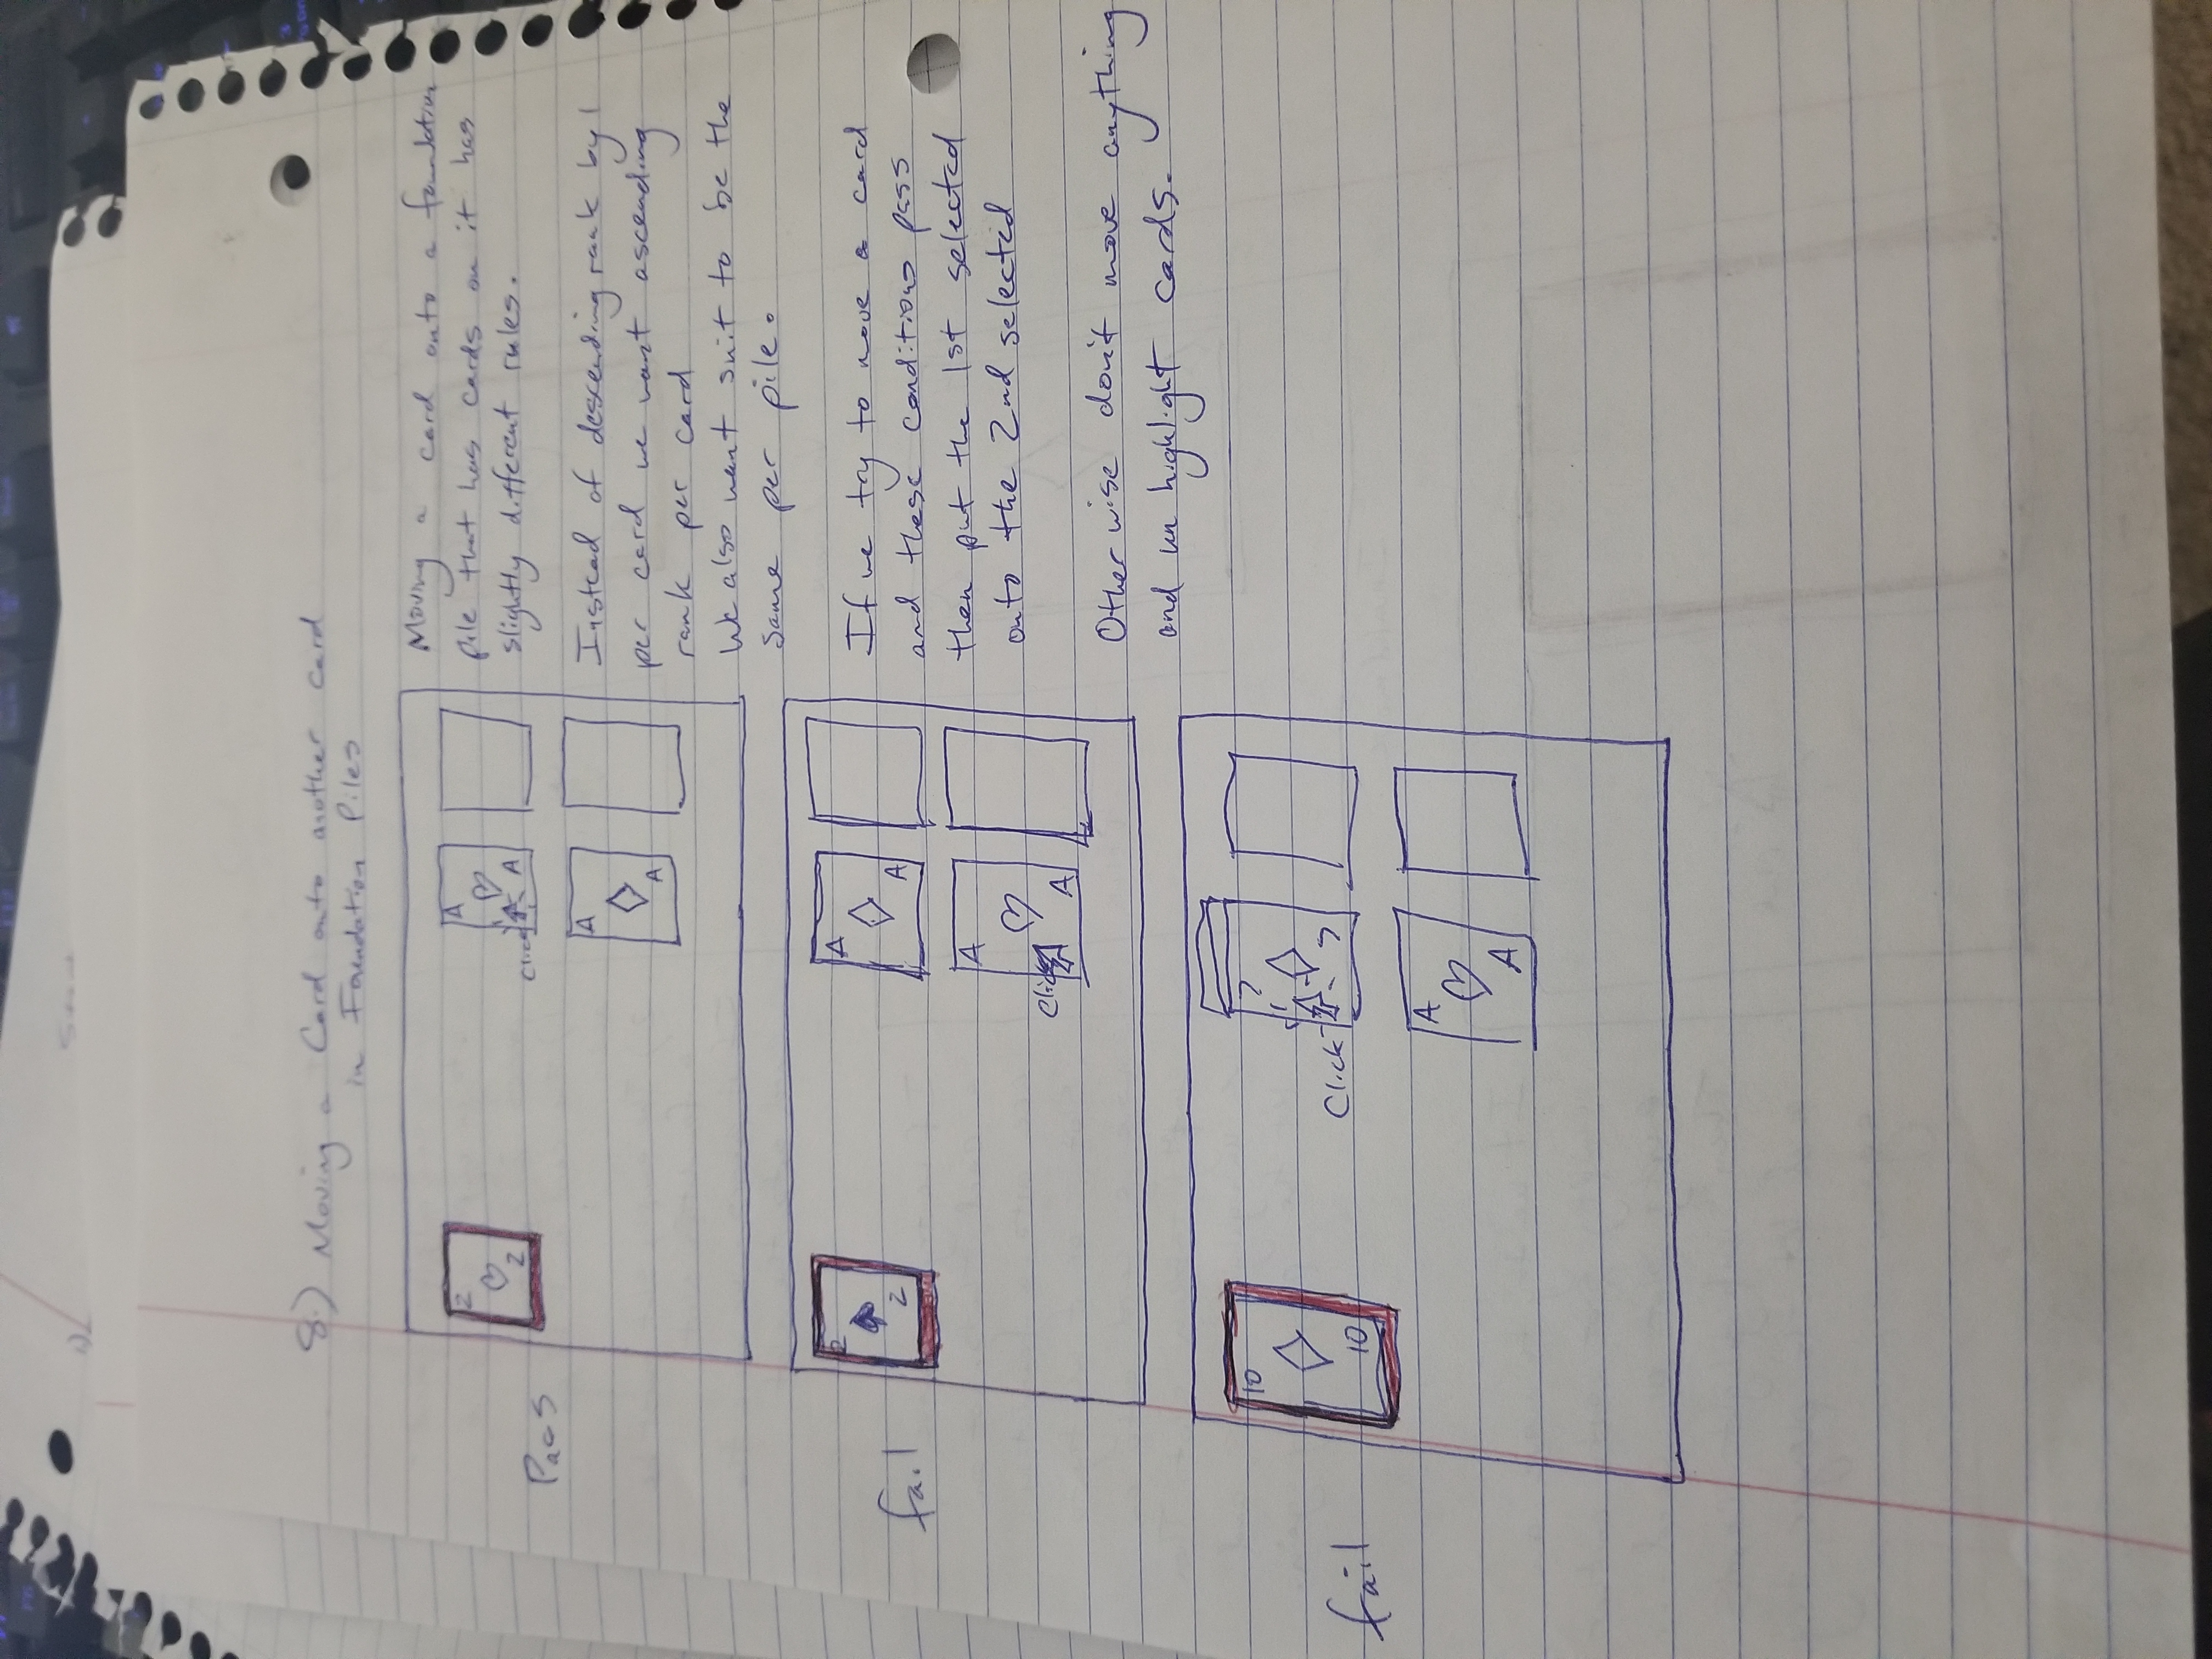 8.) Moving a Card onto another card
in Foundation Piles
Pass
2
2
A
A
Click
A
A
Moving a card onto a foundation
pile that has cards on it has
slightly different rules.
Instead of descending rank by 1
per card we want ascending
rank per card
We also want suit to be the
same per pile.
fail
2
2
A
A
A
Click
A
If we try to move a card
and these conditions pass
then put the 1st selected
onto the 2nd selected
Otherwise don't move anything
and un highlight cards.
fail
10
10
Click
A
A